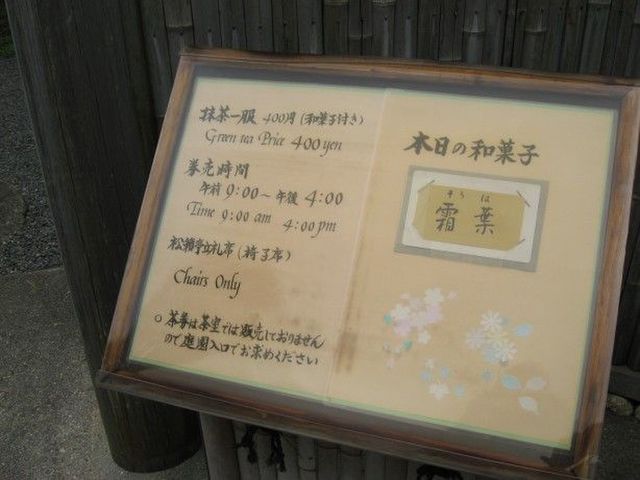 抹茶一服 400円(和菓子付き)
Green tea Price 400 yen
券売時間
午前 9:00~午後 4:00
Time 9:00 am 4:00 pm
松籟亭立礼席(椅子席)
Chairs Only
○茶券は茶室では販売しておりません
ので庭園入口でお求めください
本日の和菓子
そう は
霜葉